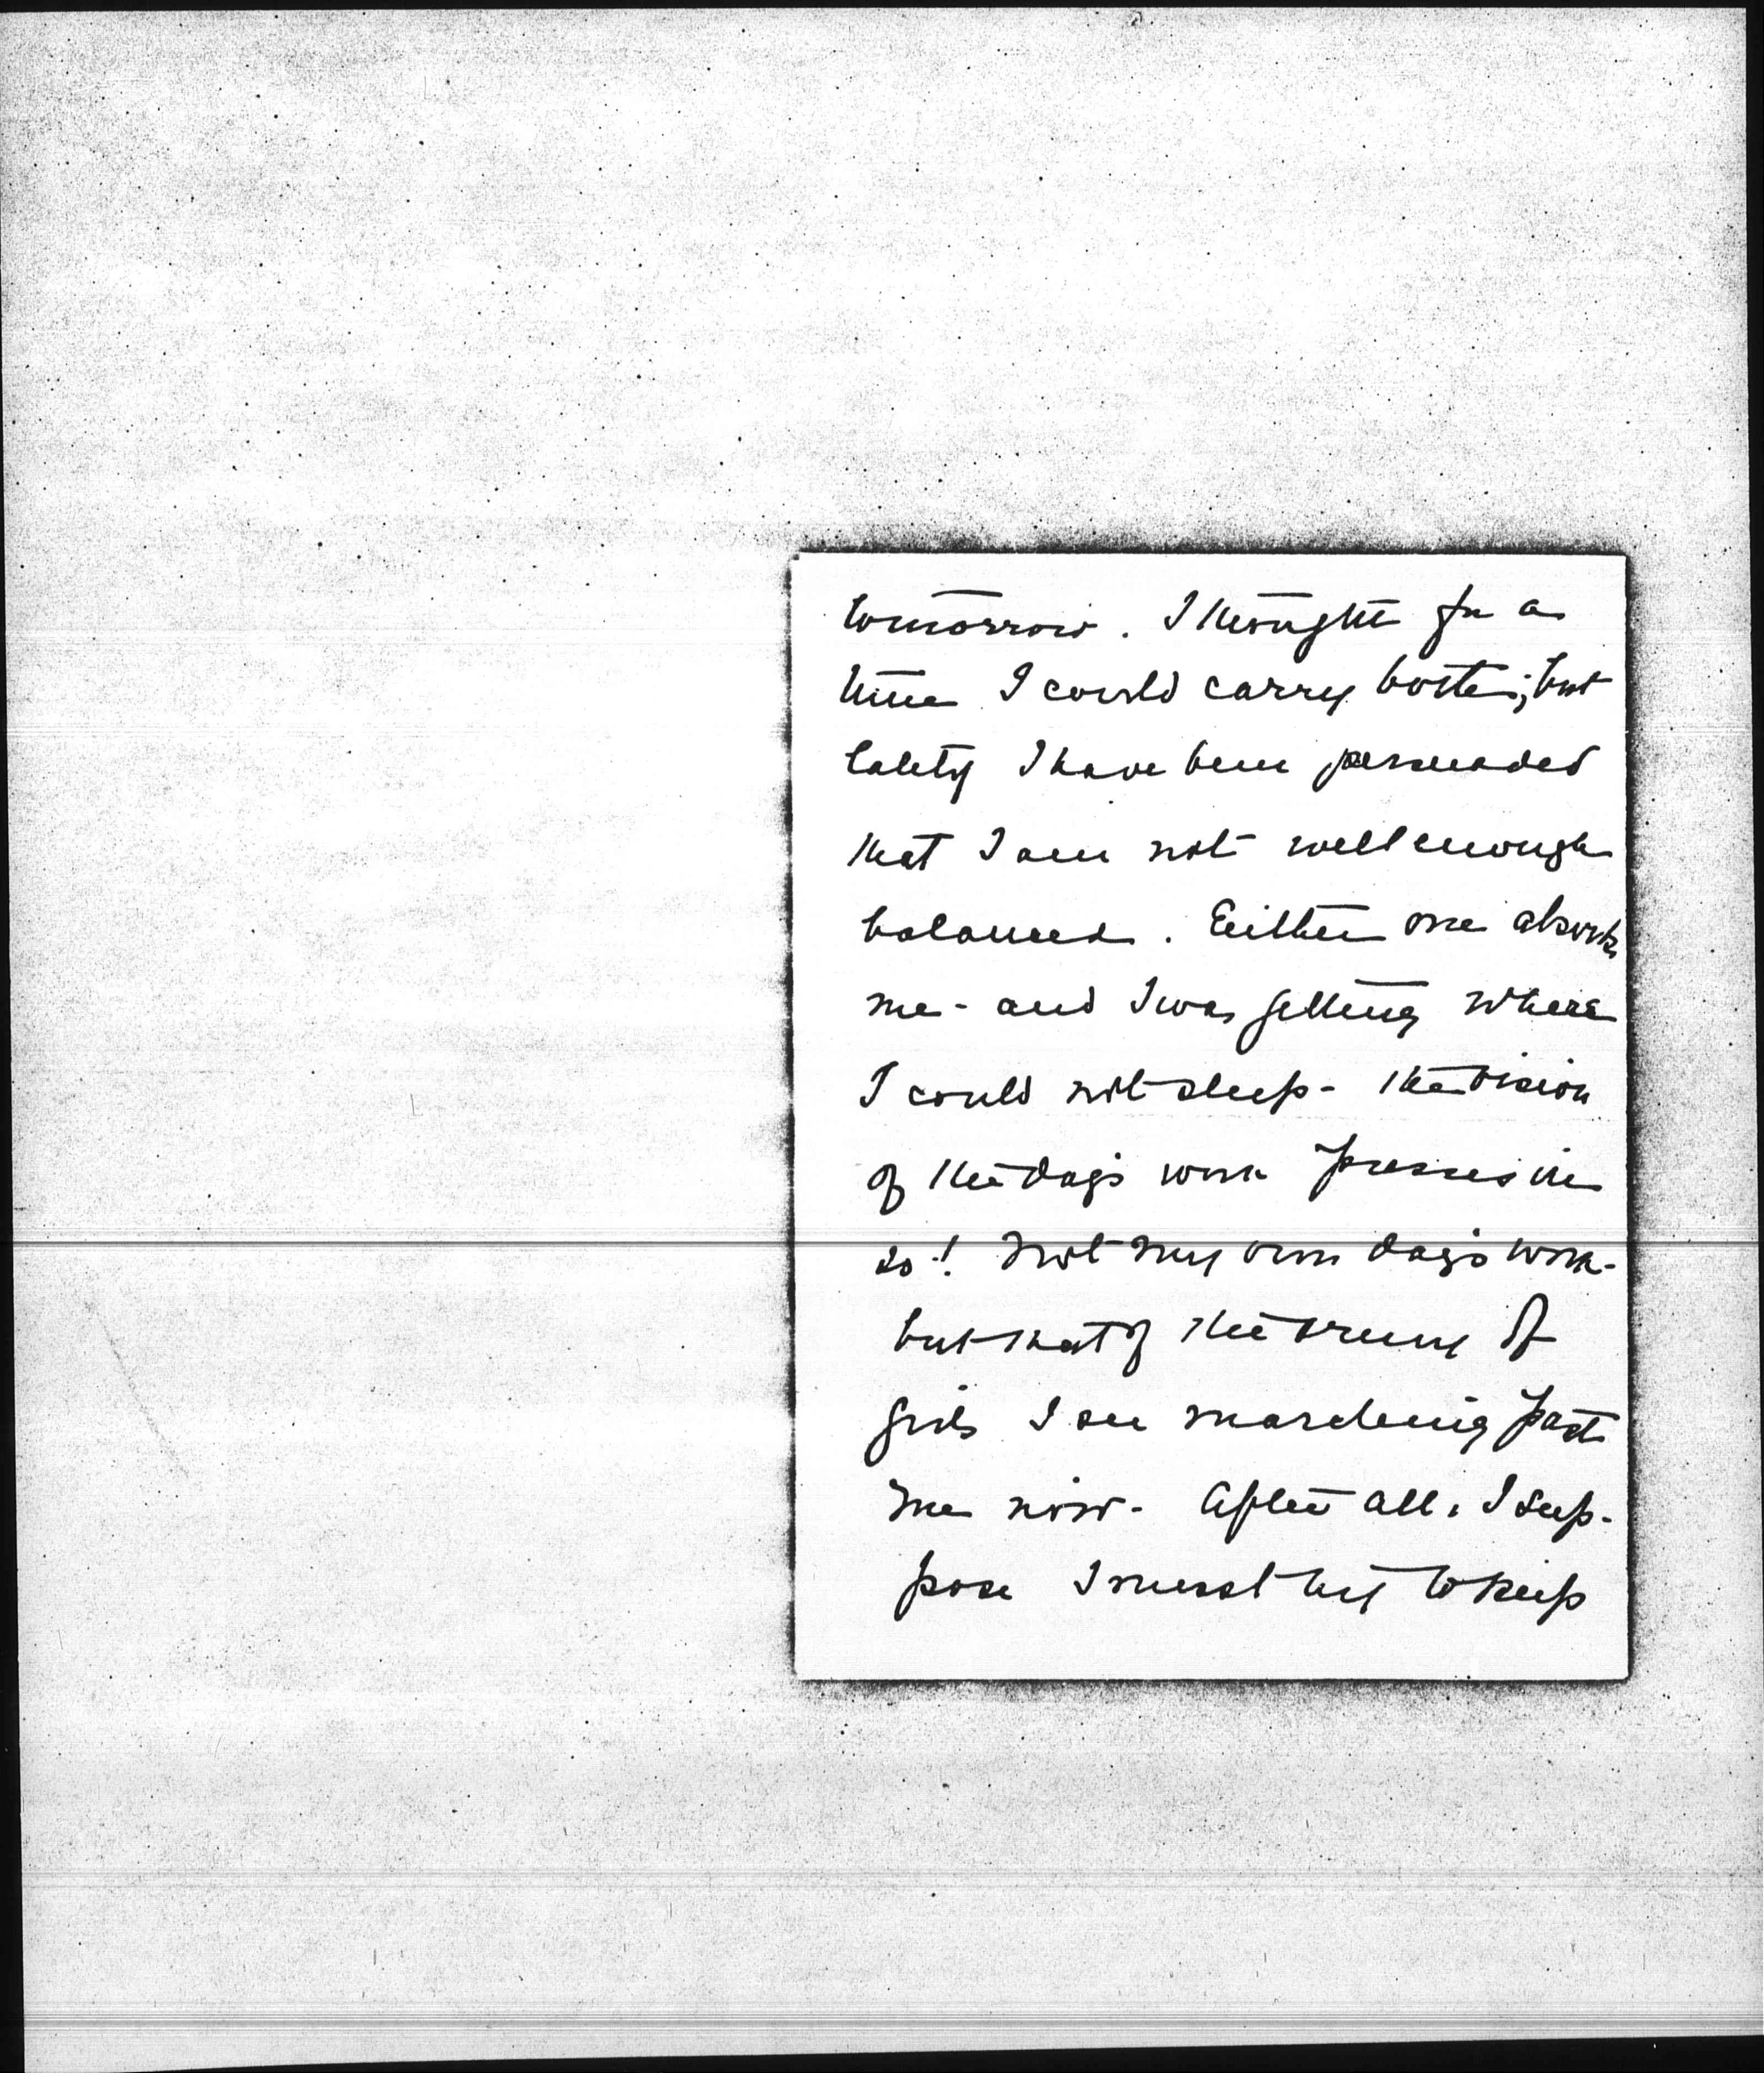 tomorrow. I thought for a
time I could carry both; but
lately I have been persuaded
that I am not well enough
balanced. Either one absorbs
me - and I was getting where
I could not sleep - the vision
of the day's work presses me
so! Not my own day's work -
but that of the army of
girls I see marching past
me now - After all, I sup-
pose I must try to keep